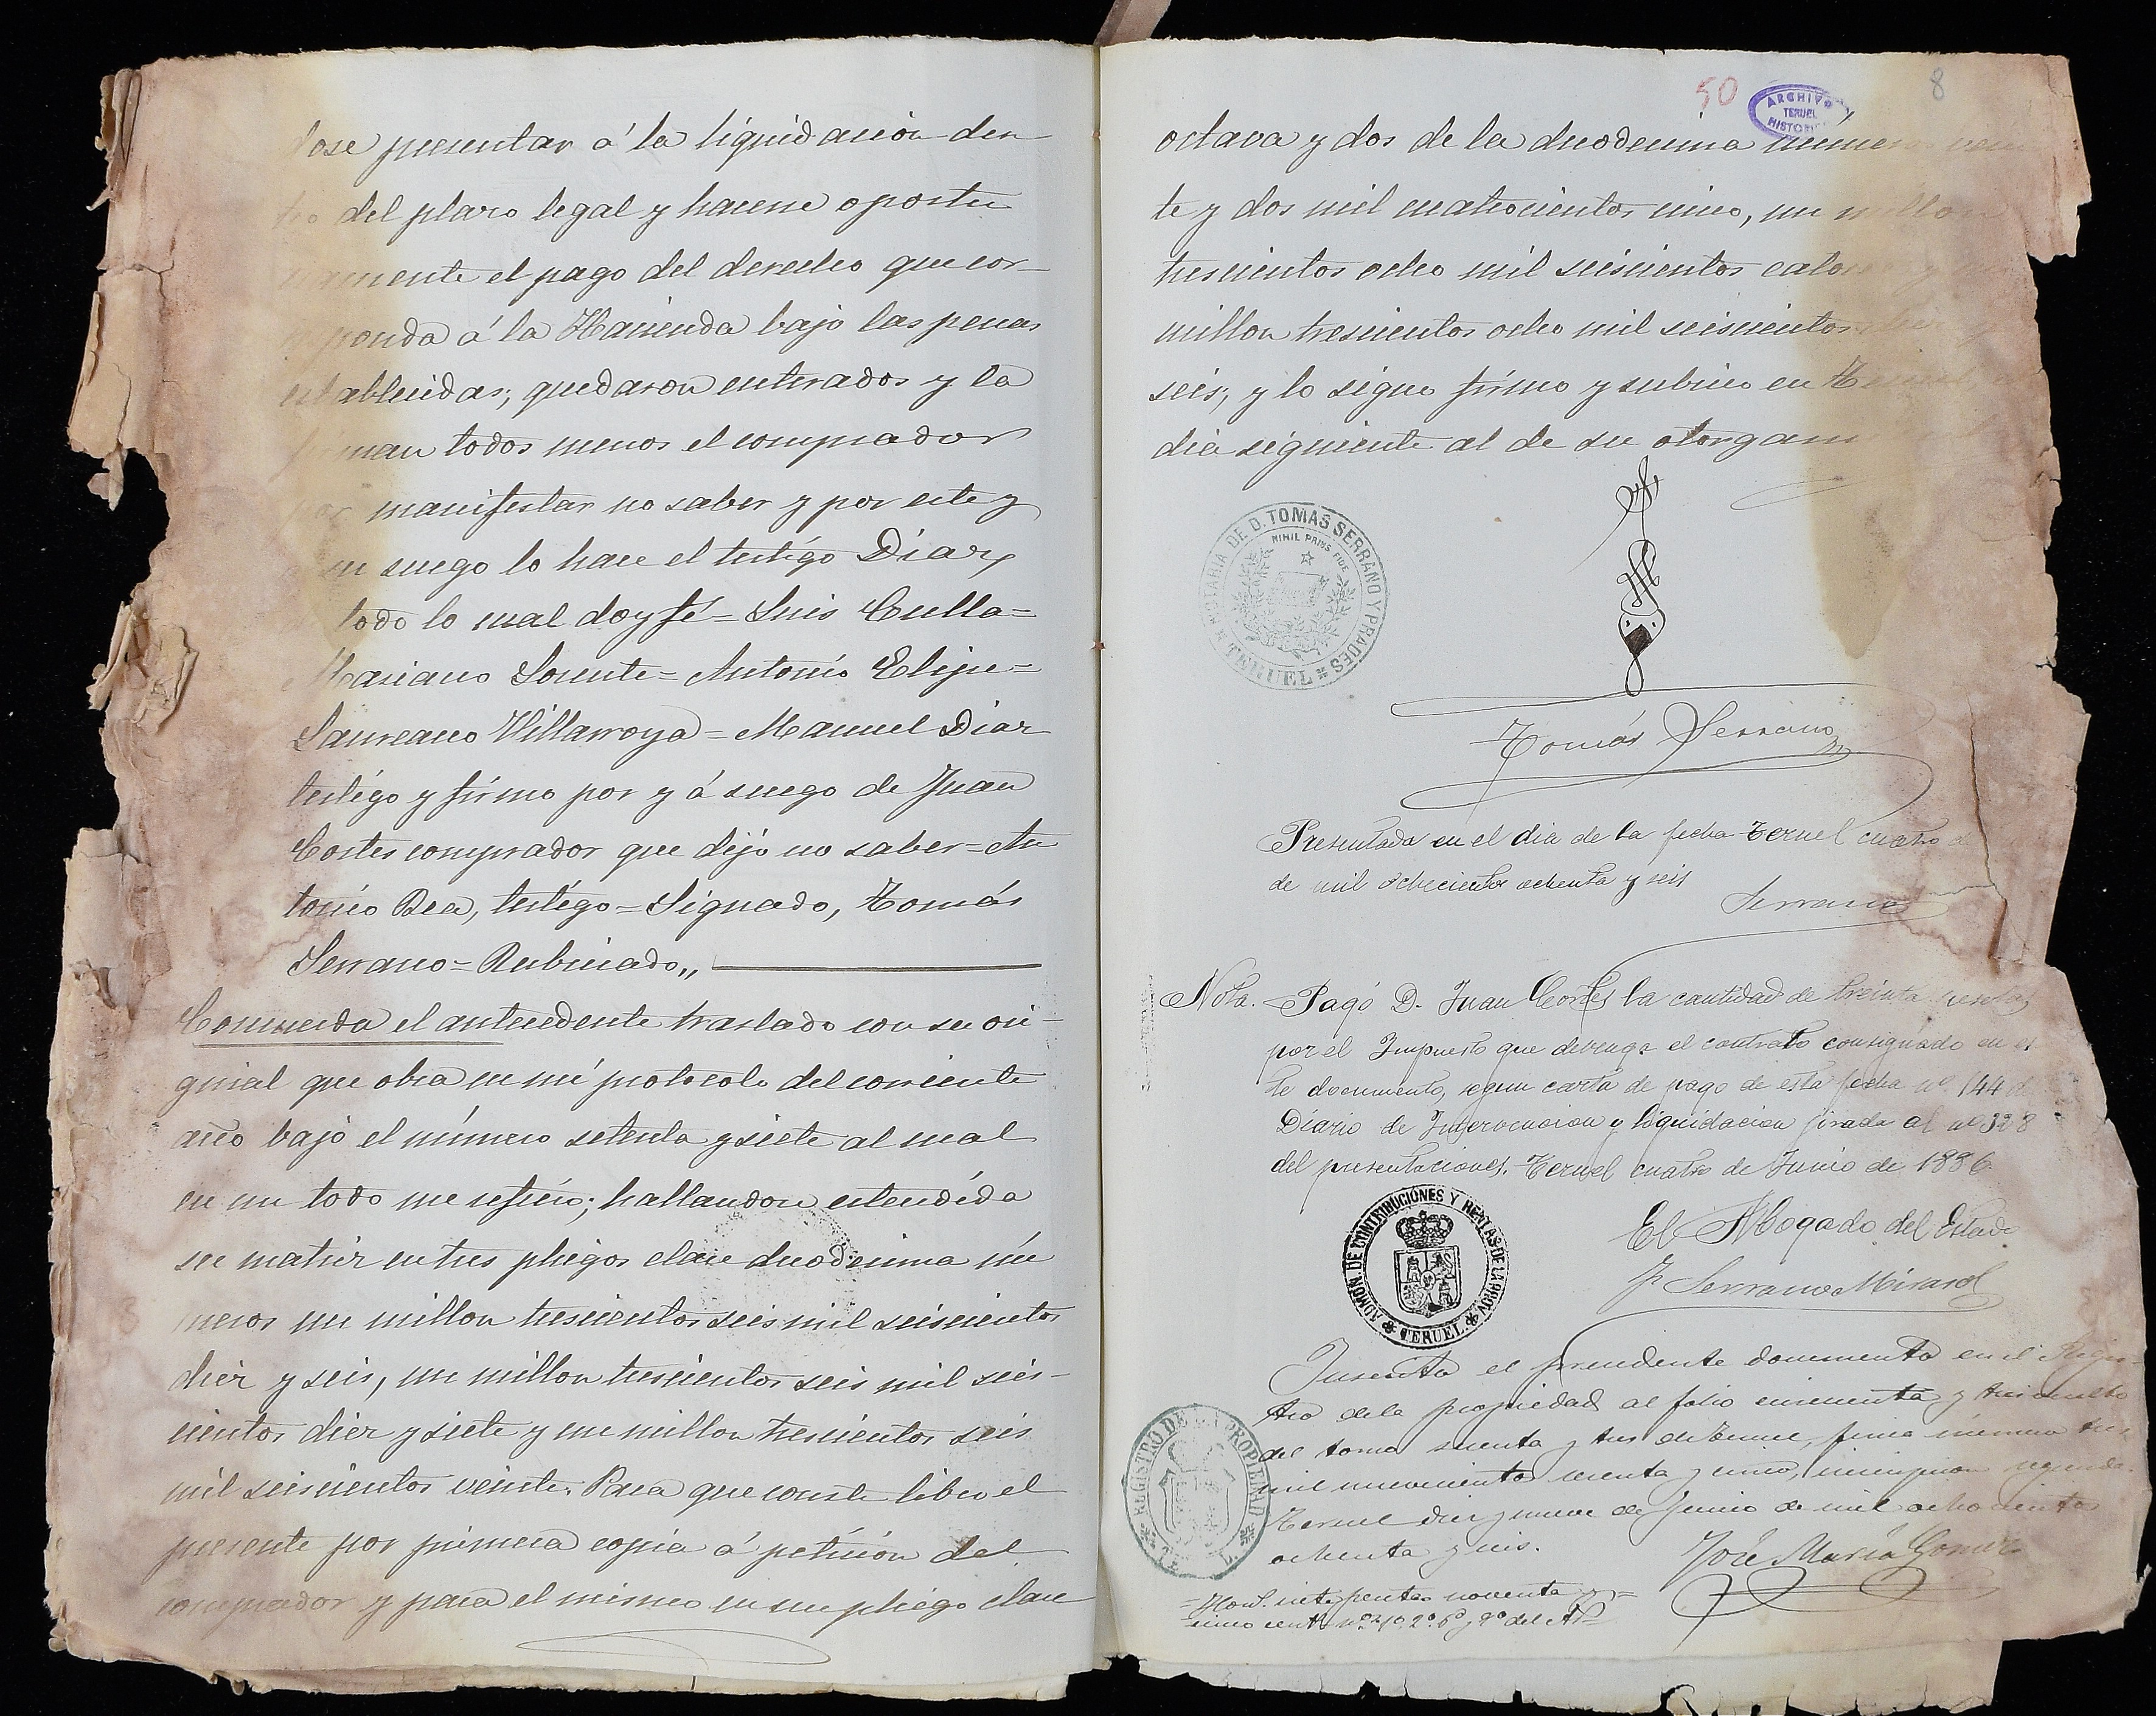 dose presentar á la liquidacion den
tro del plazo legal y hacerse oportu
namente el pago del derecho que cor-
responda á la Hacienda bajo las penas
establecidas; quedaron enterados y la
firman todos menos el comprador
por manifestar no saber y por este y
su ruego lo hace el testigo Diaz,
todo lo cual doy fé = Luis Culla=
Mariano Lorente = Antonio Elipe=
Laureano Villarroya = Manuel Diaz
testigo y firmo por y á ruego de Juan
Cortes comprador que dijo no saber = An
tonio Bea, testigo = Signado, Tomás
Serrano = Rubricado,,
Concuerda el antecedente traslado con su ori-
ginal que obra en mi protocolo del corriente
año bajo el número setenta y siete al cual
en un todo me refiero; hallandose estendida
su matriz en tres pliegos clase duodecima nú
meros un millon trescientos seis mil seiscientos
diez y seis, un millon trescientos seis mil seis-
cientos diez y siete y un millon trescientos seis
mil seiscientos veinte. Para que conste libro el
presente por primera copia á peticion del
comprador y para el mismo en un pliego clase
50
8
ARCHIVO
TERUEL
HISTORI
octava y dos de la duodecima numero vein
te y dos mil cuatrocientos cinco, un millon
trescientos ocho mil seiscientos cator
millon trescientos ocho mil seiscientos
seis, y lo signo firmo y rubrico en Teruel
dia siguiente al de su otorgam
NOTARIA DE D. TOMAS SERRANO Y PRADES
NIHIL PRIUS FIDE
TERUEL
Tomás Serrano
Presentada en el dia de la fecha Teruel cuatro d
de mil ochocientos ochenta y seis
Serrano
Nota. Pagó D. Juan Cortés la cantidad de treinta pesetas
por el Impuesto que devenga el contrato consignado en es
te documento, segun carta de pago de esta fecha nº 144 d
Diario de Intervencion y liquidacion girada al nº 328
del presentaciones. Teruel cuatro de Junio de 1886.
ADMÓN. DE CONTRIBUCIONES Y RENTAS DE LA PROVA
TERUEL
El Abogado del Estado
Serrano Mirasol
Inscrito el precedente documento en el Regis-
tro de la propiedad al folio cincuenta y tres vuelto
del tomo y tres de Teruel, finca número tres
mil novecientos y cinco, inscripcion segunda.
Teruel diez y nueve de Junio de mil ochocientos
ochenta y seis.
REGISTRO DE LA PROPIEDAD
José María Gomez
=Hons. siete pesetas noventa y=
cinco cents nos 1º 2º 6º y 9º del Arl